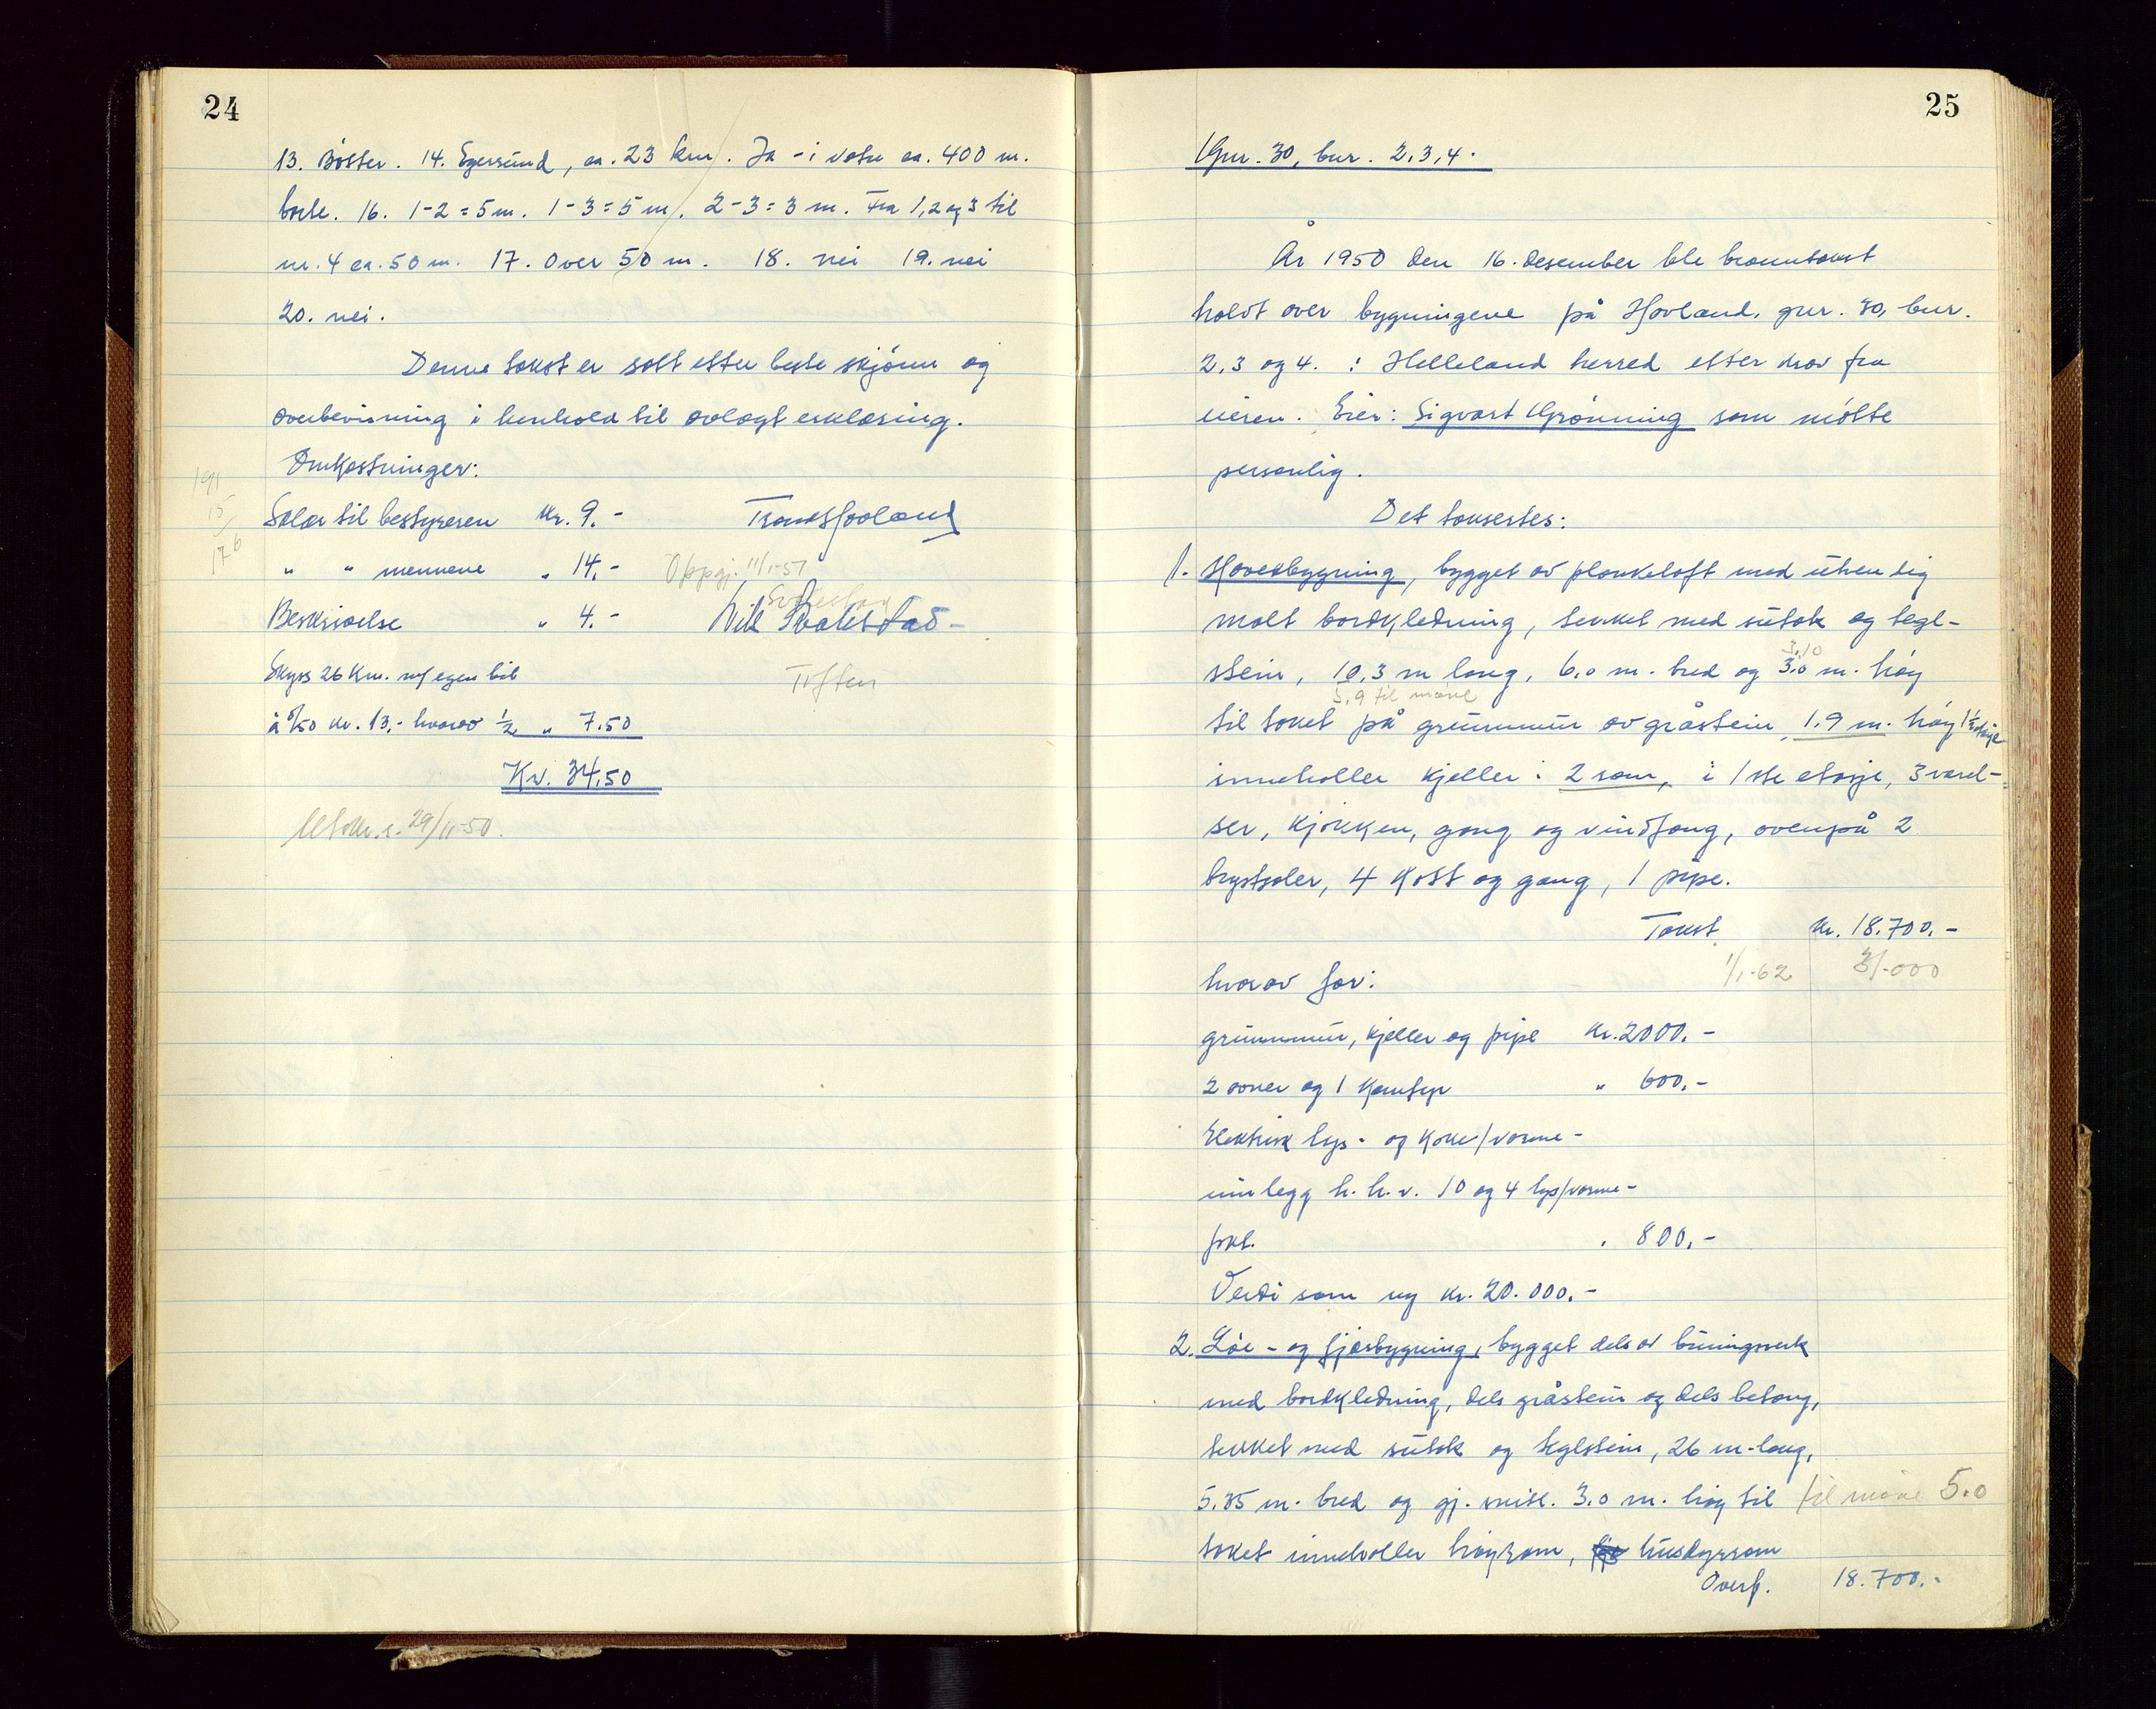 24
13. Bøtter. 14. Egersund, ca. 23 km. Ja - i vatn ca. 400 m.
borte. 16. 1-2 = 5 m. 1-3 = 5 m. 2-3 = 3 m. Fra 1, 2 og 3 til
nr. 4 ca. 50 m. 17. Over 50 m. 18. nei 19. nei
20. nei.
Denne takst er satt etter beste skjønn og
overbevisning i henhold til avlagt erklæring.
Omkostninger:
191
15
176
Salær til bestyreren Kr. 9.-
" " mennene " 14.- Oppgj. 11/1-51
Beskrivelse " 4.-
Skyss 26 Km. m/ egen bil
à 0/50 kr. 13,- hvorav 1/2 " 7.50
Kr. 34,50
29/11-50.
25
Gnr. 30, bnr. 2,3,4.
År 1950 den 16. desember ble branntakst
holdt over bygningene på Hovland, gnr. 30, bnr.
2, 3 og 4. i Helleland herred etter krav fra
eieren. Eier: Sigvart Grønning som møtte
personlig.
Det takseres:
1. Hovedbygning, bygget av plankelaft med utvendig
malt bordkledning, tekket med sutak og tegl-
3.10
stein, 10,3 m lang, 6,0 m. bred og 3,0 m. høy
5,9 til møne
til taket på grunnmur av gråstein, 1.9 m. høy 1 1/2 etasje
inneholler kjeller i 2 rom, i 1ste etasje, 3 værel-
ser, kjøkken, gang og vindfang, ovenpå 2
brystsaler, 4 kott og gang, 1 pipe.
Takst Kr. 18.700.-
1/1-62 31.000
hvorav for:
grunnmur, kjeller og pipe Kr. 2000.-
2 ovner og 1 komfyr " 600.-
Elektrisk lys- og koke/varme-
innlegg h.h.v. 10 og 4 lys/varme-
pkt. " 800.-
Verdi som ny kr. 20.000.-
2. Løe- og fjøsbygning, bygget dels av bindingsverk
med bordkledning, dels gråstein og dels betong,
tekket med sutak og teglstein, 26 m. lang,
5,35 m. bred og gj. snitt. 3.0 m. høy til til møne 5.0
taket inneholler høyrom, husdyrrom
Overf. 18.700.-